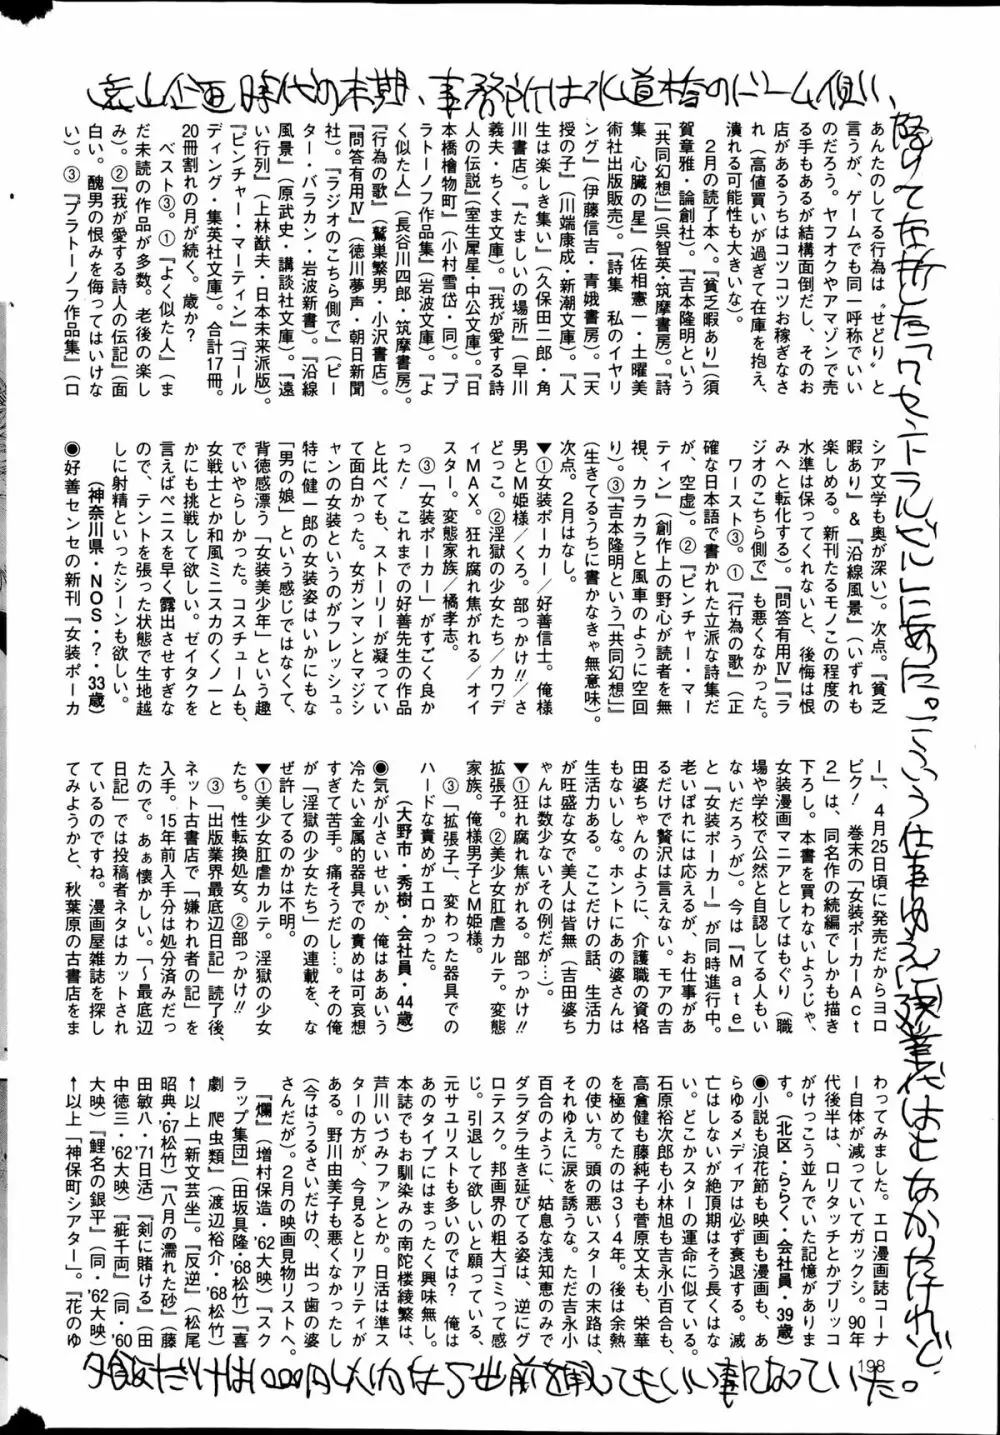 遠山企画時代の末期、事務所は水道橋のドーム側い、
あんたのしてる行為は〝せどり〟と
言うが、ゲームでも同一呼称でいい
のだろう。ヤフオクやアマゾンで売
る手もあるが結構面倒だし、そのお
店があるうちはコツコツお稼ぎなさ
れ(高値買いが過ぎて在庫を抱え、
潰れる可能性も大きいな)。
2月の読了本へ。『貧乏暇あり』(須
賀章雅・論創社)。『吉本隆明という
「共同幻想」』(呉智英・筑摩書房)。『詩
集 心臓の星』(佐相憲一・土曜美
術社出版販売)。『詩集 私のイヤリ
ング』(伊藤信吉・青娥書房)。『天
授の子』(川端康成・新潮文庫)。『人
生は楽しき集い』(久保田二郎・角
川書店)。『たましいの場所』(早川
義夫・ちくま文庫)。『我が愛する詩
人の伝説』(室生犀星・中公文庫)。『日
本橋檜物町』(小村雪岱・同)。『プ
ラトーノフ作品集』(岩波文庫)。『よ
く似た人』(長谷川四郎・筑摩書房)。
『行為の歌』(鷲巣繁男・小沢書店)。
『問答有用Ⅳ』(徳川夢声・朝日新聞
社)。『ラジオのこちら側で』(ピー
ター・バラカン・岩波新書)。『沿線
風景』(原武史・講談社文庫)。『遠
い行列』(上林猷夫・日本未来派版)。
『ピンチャー・マーティン』(ゴール
ディング・集英社文庫)。合計17冊。
20冊割れの月が続く。歳か?
ベスト③。①『よく似た人』(ま
だ未読の作品が多数。老後の楽し
み)。②『我が愛する詩人の伝記』(面
白い。醜男の恨みを侮ってはいけな
い)。③『プラトーノフ作品集』(ロ
シア文学も奥が深い)。次点。『貧乏
暇あり』&『沿線風景』(いずれも
楽しめる。新刊たるモノこの程度の
水準は保ってくれないと、後悔は恨
みへと転化する)。『問答有用Ⅳ』『ラ
ジオのこちら側で』も悪くなかった。
ワースト③。①『行為の歌』(正
確な日本語で書かれた立派な詩集だ
が、空虚)。②『ピンチャー・マー
ティン』(創作上の野心が読者を無
視、カラカラと風車のように空回
り)。③『吉本隆明という「共同幻想」』
(生きてるうちに書かなきゃ無意味)。
次点。2月はなし。
▼①女装ポーカー/好善信士。俺様
男とM姫様/くろ。部っかけ!!/さ
どっこ。②淫獄の少女たち/カワデ
ィMAX。狂れ腐れ焦がれる/オイ
スター。変態家族/橘孝志。
③「女装ポーカー」がすごく良か
った! これまでの好善先生の作品
と比べても、ストーリーが凝ってい
て面白かった。女ガンマンとマジシ
ャンの女装というのがフレッシュ。
特に健一郎の女装姿はいかにもな
「男の娘」という感じではなくて、
背徳感漂う「女装美少年」という趣
でいやらしかった。コスチュームも、
女戦士とか和風ミニスカのくノ一と
かにも挑戦して欲しい。ゼイタクを
言えばペニスを早く露出させすぎな
ので、テントを張った状態で生地越
しに射精といったシーンも欲しい。
(神奈川県・NOS・?・33歳)
●好善センセの新刊『女装ポーカ
ー』、4月25日頃に発売だからヨロ
ピク! 巻末の「女装ポーカーAct
2」は、同名作の続編でしかも描き
下ろし。本書を買わないようじゃ、
女装漫画マニアとしてはもぐり(職
場や学校で公然と自認してる人もい
ないだろうが)。今は『Mate』
と『女装ポーカー』が同時進行中。
老いぼれには応えるが、お仕事があ
るだけで贅沢は言えない。モアの吉
田婆ちゃんのように、介護職の資格
もないしな。ホントにあの婆さんは
生活力ある。ここだけの話、生活力
が旺盛な女で美人は皆無(吉田婆ち
ゃんは数少ないその例だが…)。
▼①狂れ腐れ焦がれる。部っかけ!!
拡張子。②美少女肛虐カルテ。変態
家族。俺様男子とM姫様。
③「拡張子」、変わった器具での
ハードな責めがエロかった。
(大野市・秀樹・会社員・44歳)
●気が小さいせいか、俺はああいう
冷たい金属的器具での責めは可哀想
すぎて苦手。痛そうだし…。その俺
が「淫獄の少女たち」の連載を、な
ぜ許してるのかは不明。
▼①美少女肛虐カルテ。淫獄の少女
たち。性転換処女。②部っかけ!!
③「出版業界最底辺日記」読了後、
ネット古書店で「嫌われ者の記」を
入手。15年前入手分は処分済みだっ
たので。あぁ懐かしい。「〜最底辺
日記」では投稿者ネタはカットされ
ているのですね。漫画屋雑誌を探し
てみようかと、秋葉原の古書店をま
わってみました。エロ漫画誌コーナ
ー自体が減っていてガックシ。90年
代後半は、ロリタッチとかブリッコ
がけっこう並んでいた記憶がありま
す。(北区・ららく・会社員・39歳)
●小説も浪花節も映画も漫画も、あ
らゆるメディアは必ず衰退する。滅
亡はしないが絶頂期はそう長くはな
い。どこかスターの運命に似ている。
石原裕次郎も小林旭も吉永小百合も
高倉健も藤純子も菅原文太も、栄華
を極めてたのは3〜4年。後は余熱
の使い方。頭の悪いスターの末路は、
それゆえに涙を誘うな。ただ吉永小
百合のように、姑息な浅知恵のみで
ダラダラ生き延びてる姿は、逆にグ
ロテスク。邦画界の粗大ゴミって感
じ。引退して欲しいと願っている、
元サユリストも多いのでは? 俺は
あのタイプにはまったく興味無し。
本誌でもお馴染みの南陀楼綾繁は、
芦川いづみファンとか。日活は準ス
ターの方が、今見るとリアリティが
ある。野川由美子も悪くなかったし
(今はうるさいだけの、出っ歯の婆
さんだが)。2月の映画見物リストへ。
『爛』(増村保造・'62大映)『スク
ラップ集団』(田坂具隆・'68松竹)『喜
劇 爬虫類』(渡辺祐介・'68松竹)
←以上「新文芸坐」。『反逆』(松尾
昭典・'67松竹)『八月の濡れた砂』(藤
田敏八・'71日活)『剣に賭ける』(田
中徳三・'62大映)『疵千両』(同・'60
大映)『鯉名の銀平』(同・'62大映)
←以上「神保町シアター」。『花のゆ
198
こういう仕事ゆえに残業代はもなかったけれど
夕飯だけは1000円以内なら出前を取ってもいい事になっていた。